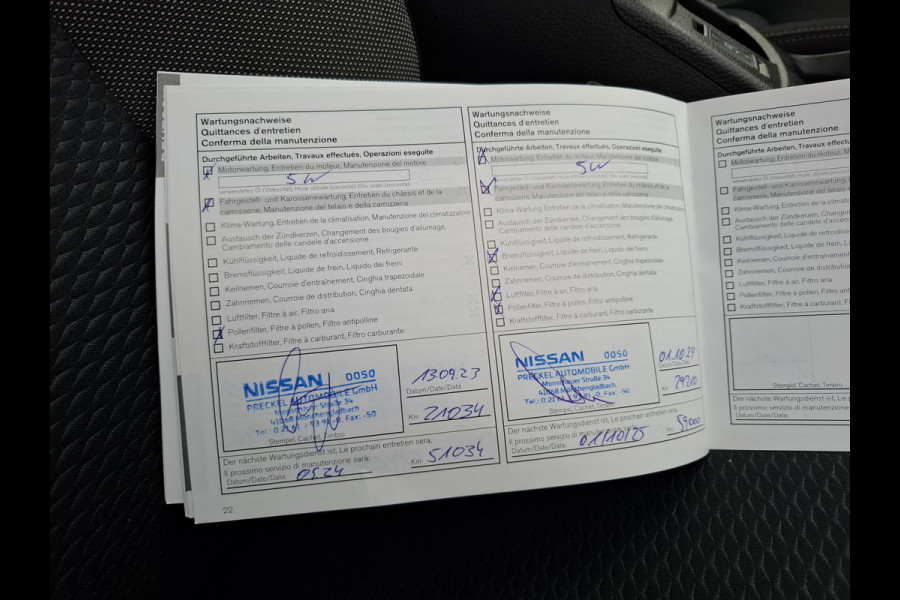 Wartungsnachweise
Quittances d'entretien
Conferma della manutenzione
Durchgeführte Arbeiten, Travaux effectués, Operazioni eseguite
Motorwartung, Entretien du moteur, Manutenzione del motore
5W
verwendetes Öl (Viskosität), Huile utilisée (viscosité), Olio usato (viscosità)
Fahrgestell- und Karosseriewartung, Entretien du châssis et de la
carrosserie, Manutenzione del telaio e della carrozzeria
Klima-Wartung, Entretien de la climatisation, Manutenzione del climatizzatore
Austausch der Zündkerzen, Changement des bougies d'allumage,
Cambiamento delle candele d'accensione
Kühlflüssigkeit, Liquide de refroidissement, Refrigerante
Bremsflüssigkeit, Liquide de frein, Liquido dei freini
Keilriemen, Courroie d'entraînement, Cinghia trapezoidale
Zahnriemen, Courroie de distribution, Cinghia dentata
Luftfilter, Filtre à air, Filtro aria
Pollenfilter, Filtre à pollen, Filtro antipolline
Kraftstofffilter, Filtre à carburant, Filtro carburante
NISSAN 0050
PRECKEL AUTOMOBILE GmbH
Monschauer Straße 34
41068 Mönchengladbach
Stempel, Cachet, Timbro
13.09.23
Datum/Date/Data
Km 21034
Der nächste Wartungsdienst ist, Le prochain entretien sera,
Il prossimo servizio di manutenzione sarà:
Datum/Date/Data: 09.24
Km 51034
22
Wartungsnachweise
Quittances d'entretien
Conferma della manutenzione
Durchgeführte Arbeiten, Travaux effectués, Operazioni eseguite
Motorwartung, Entretien du moteur, Manutenzione del motore
5W
verwendetes Öl (Viskosität), Huile utilisée (viscosité), Olio usato (viscosità)
Fahrgestell- und Karosseriewartung, Entretien du châssis et de la
carrosserie, Manutenzione del telaio e della carrozzeria
Klima-Wartung, Entretien de la climatisation, Manutenzione del climatizzatore
Austausch der Zündkerzen, Changement des bougies d'allumage,
Cambiamento delle candele d'accensione
Kühlflüssigkeit, Liquide de refroidissement, Refrigerante
Bremsflüssigkeit, Liquide de frein, Liquido dei freini
Keilriemen, Courroie d'entraînement, Cinghia trapezoidale
Zahnriemen, Courroie de distribution, Cinghia dentata
Luftfilter, Filtre à air, Filtro aria
Pollenfilter, Filtre à pollen, Filtro antipolline
Kraftstofffilter, Filtre à carburant, Filtro carburante
NISSAN 0050
PRECKEL AUTOMOBILE GmbH
Monschauer Straße 34
41068 Mönchengladbach
Stempel, Cachet, Timbro
01.10.24
Datum/Date/Data
Km
Der nächste Wartungsdienst ist, Le prochain entretien sera,
Il prossimo servizio di manutenzione sarà:
Datum/Date/Data: 01/10/25
Km 59000
Wartungsnachweise
Quittances d'entretien
Conferma della manutenzione
Durchgeführte Arbeiten, Travaux effectués, Op
Motorwartung, Entretien du moteur, M
verwendetes Öl (Viskosität), Huile utilisée (viscosité)
Fahrgestell- und Karosseriewartung, E
carrosserie, Manutenzione del telaio e
Klima-Wartung, Entretien de la climatis
Austausch der Zündkerzen, Changem
Cambiamento delle candele d'accens
Kühlflüssigkeit, Liquide de refroidiss
Bremsflüssigkeit, Liquide de frein, Li
Keilriemen, Courroie d'entraînement
Zahnriemen, Courroie de distribution
Luftfilter, Filtre à air, Filtro aria
Pollenfilter, Filtre à pollen, Filtro anti
Kraftstofffilter, Filtre à carburant, Filt
Stempel, Cachet, Timbro
Der nächste Wartungsdienst ist, Le p
Il prossimo servizio di manutenzione
Datum/Date/Data: